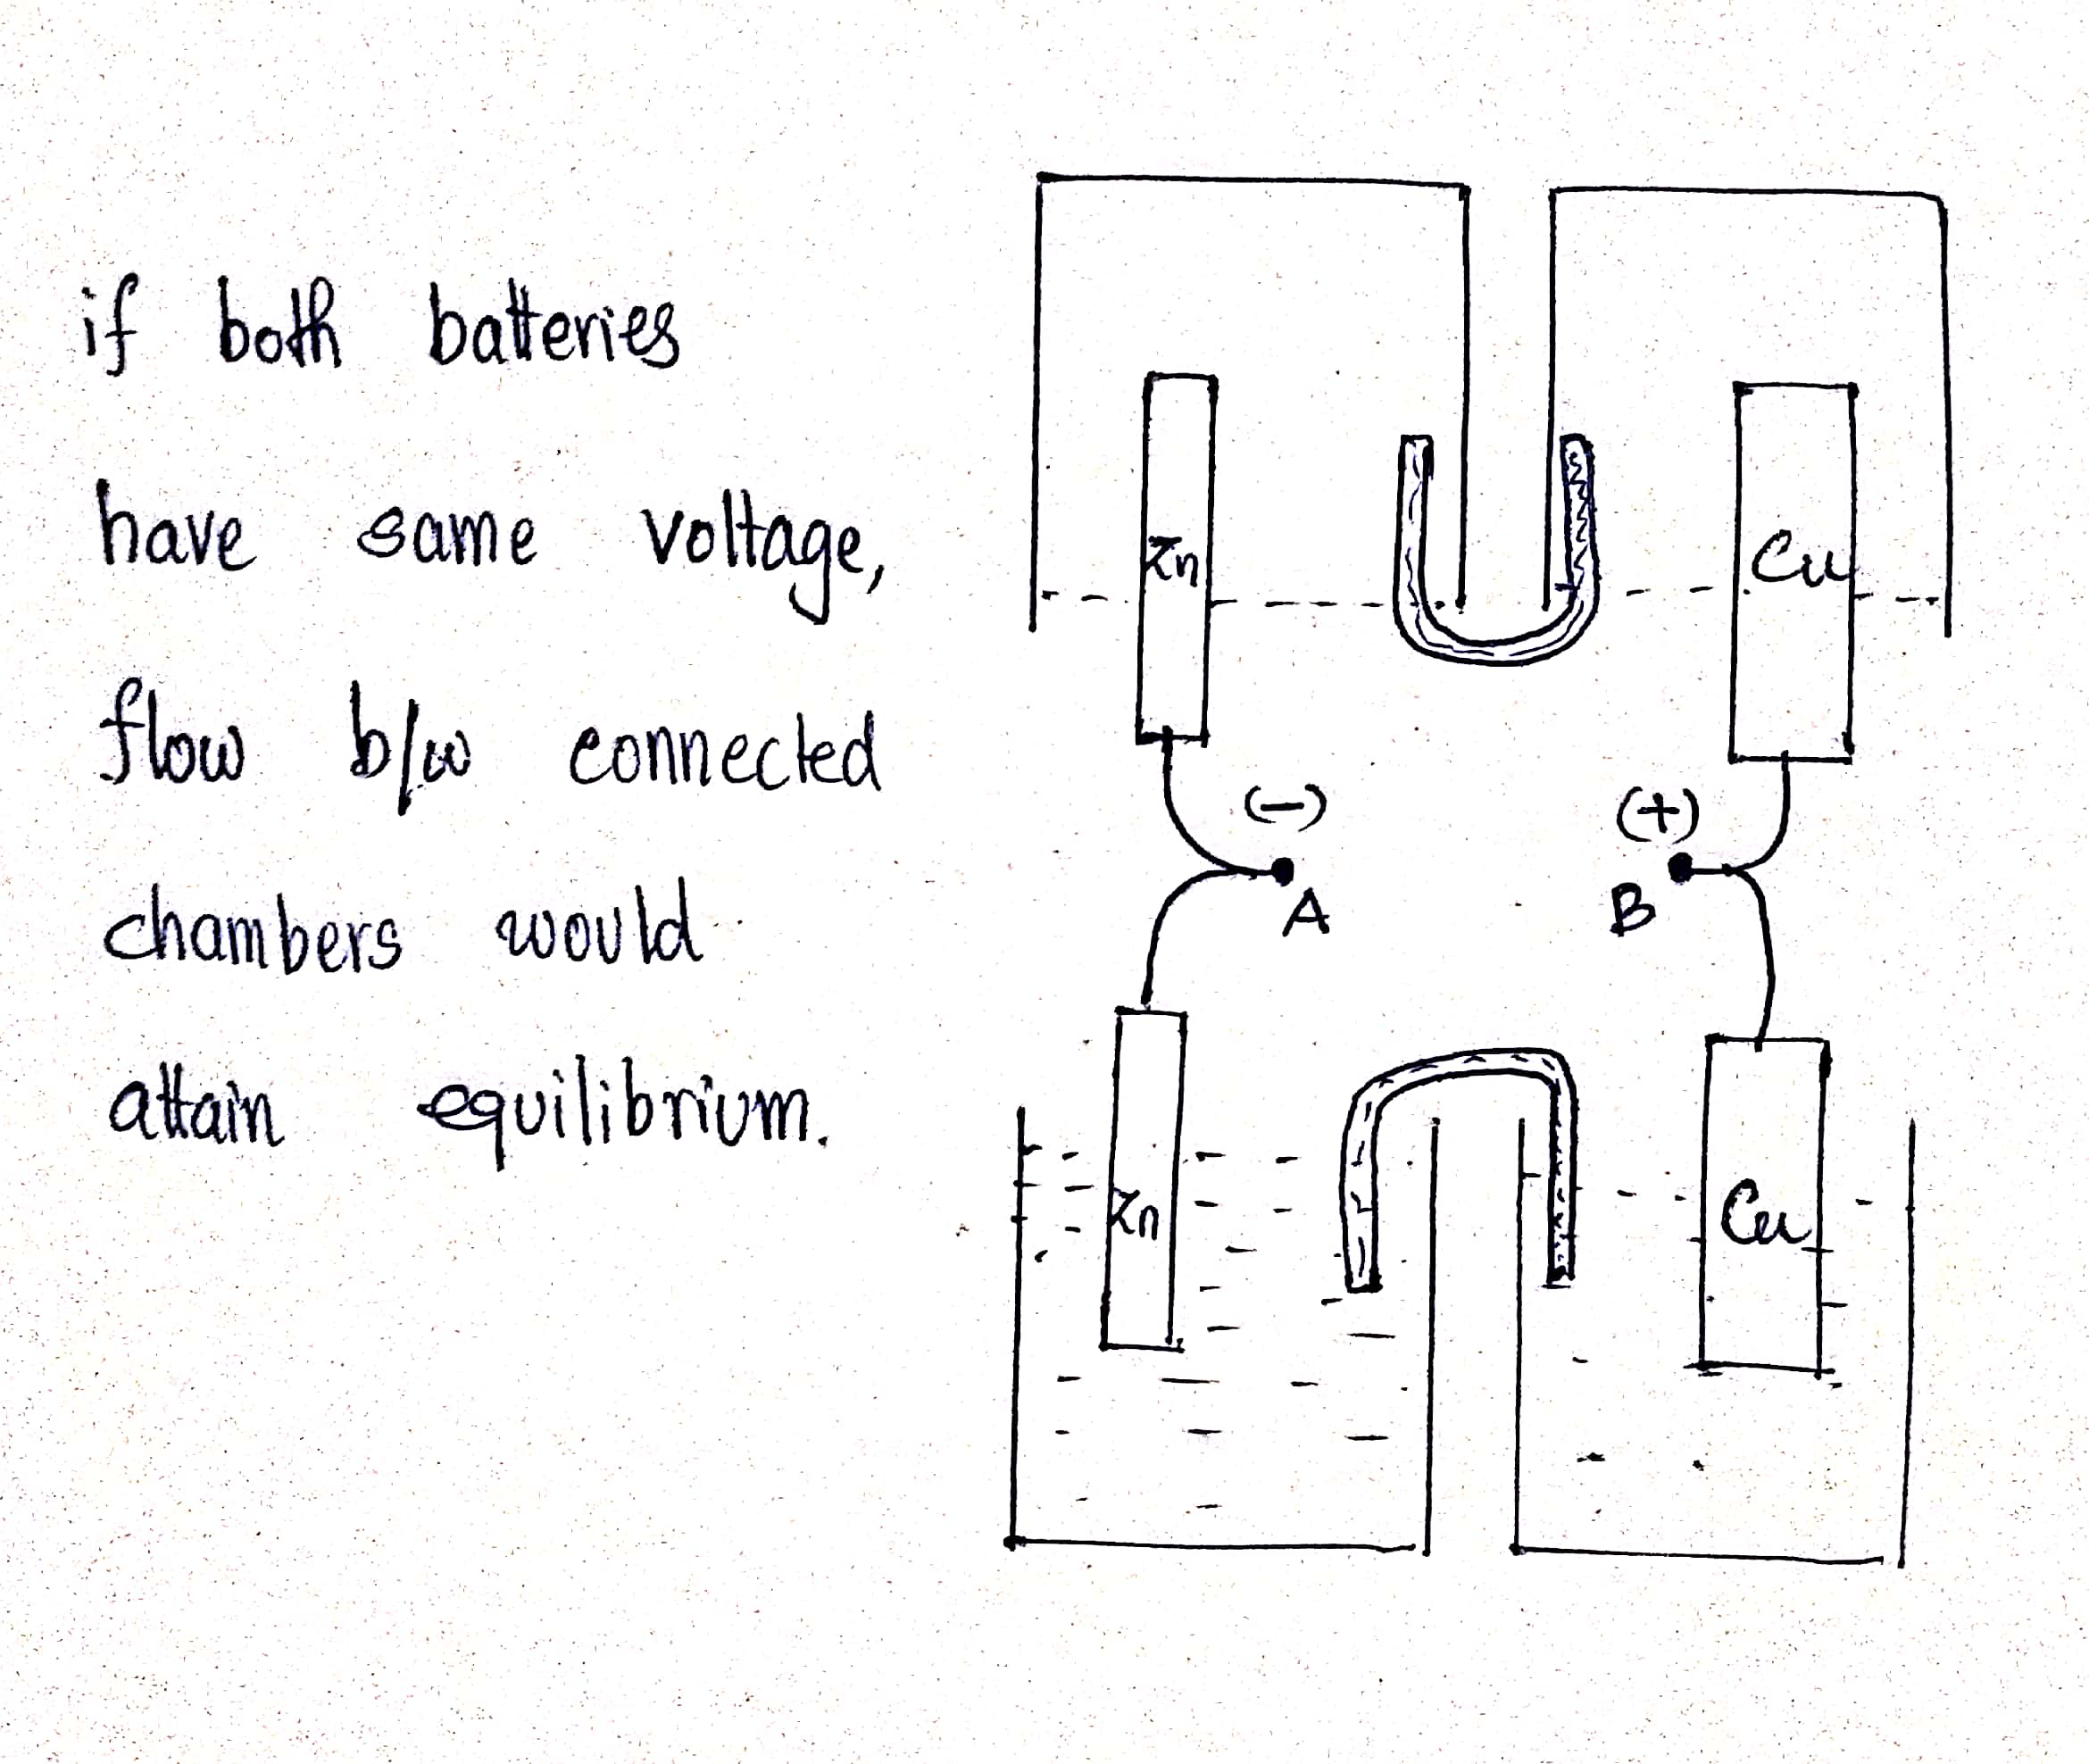 if both batteries
have same voltage,
flow b/w connected
chambers would
attain equilibrium.
Zn
Cu
(-)
(+)
A
B
Zn
Cu